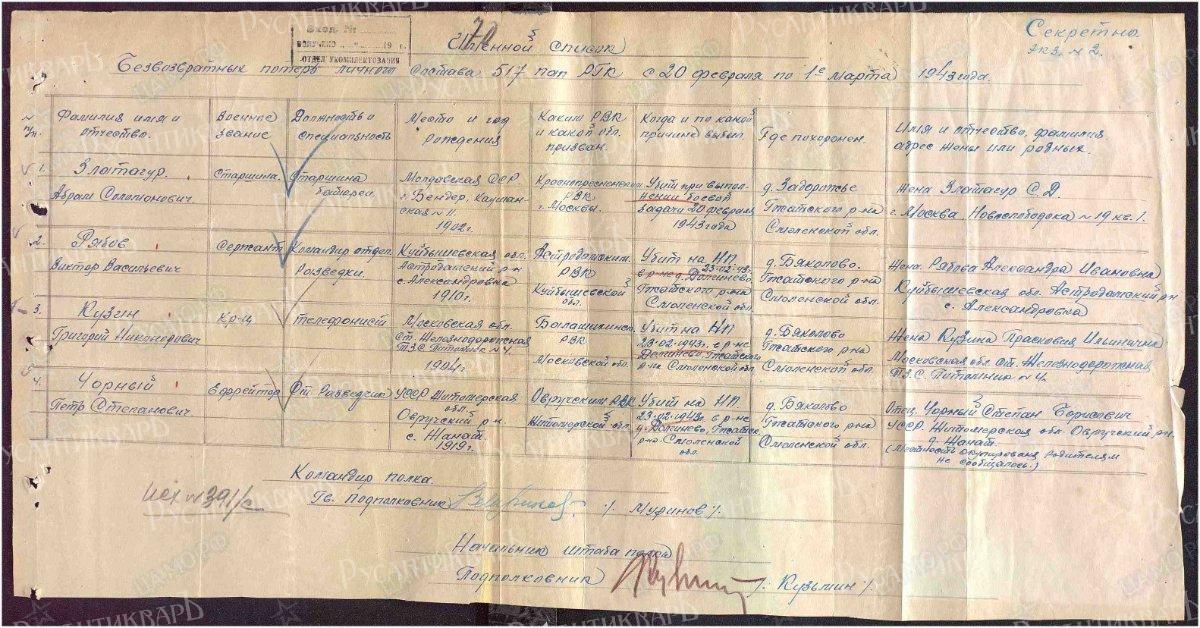 Секретно
экз. № 2.
Вход №
ОТДЕЛ УКОМПЛЕКТОВАНИЯ
Именной список
Безвозвратных потерь личного состава 517 пап РГК с 20 февраля по 1е марта 1943 года.
№ п/п. Фамилия имя и отчество. Военное звание Должность и специальность Место и год рождения Каким РВК и какой обл. призван. Когда и по какой причине выбыл Где похоронен. Имя и отчество, фамилия адрес жены или родных.
1. Златагур. Абрам Соломонович. Старшина. Старшина батареи Молдовская ССР г. Бендер. ул. № 11. Краснопресненским РВК г. Москвы. Убит при выполнении боевой задачи 20 февраля 1943 года д. Задорожье Гжатского р-на Смоленской обл. Жена Златагур С. Д. г. Москва. Новослободска № 19 кв. 1.
2. Рябов Виктор Васильевич Сержант Командир отдел. Разведки. Куйбышевская обл. Астродамский р-н с. Александровка 1910г. Астродамским РВК Куйбышевской обл. Убит на НП 23-02-43. в р-не д. Долинево Гжатского р-на Смоленской обл. д. Бяколово. Гжатского р-на Смоленской обл. Жена Рябова Александра Ивановна Куйбышевская обл. Астродамский рн с. Александровка
3. Кузин Григорий Никонорович Кр-ц Телефонист Московская обл. ст. Железнодорожная Т.З.С. Питомник № 4. 1904г. Балашихинск. РВК Московской обл. Убит на НП 23-02-1943г. в р-не Долинево, Гжатского р-на Смоленской обл. д. Бяколово Гжатского р-на Смоленской обл. Жена Кузина Прасковия Ильинична Московская обл. ст. Железнодорожная Т.З.С. Питомник № 4.
4. Чорный Петр Степанович Ефрейтор Ст. Разведчик УССР Житомерская обл. Овручский р-н. с. Жанат. 1919г. Овручским РВК Житомерской обл. Убит на НП 23-02-1943г. в р-не д. Долинево, Гжатск. р-на Смоленской обл. д. Бяколово Гжатского р-на Смоленской обл. Отец Чорный Степан Борисович УССР. Житомерская обл. Овручский р-н. д. Жанат. (Местность окупирована родителям не сообщалось.)
Командир полка.
Гв. Подполковник /. Муфинов /.
исх № 391/с
Начальник штаба полка
Подполковник /. Кузьмин /.
РусАнтикваръ
ЦАМО.РФ